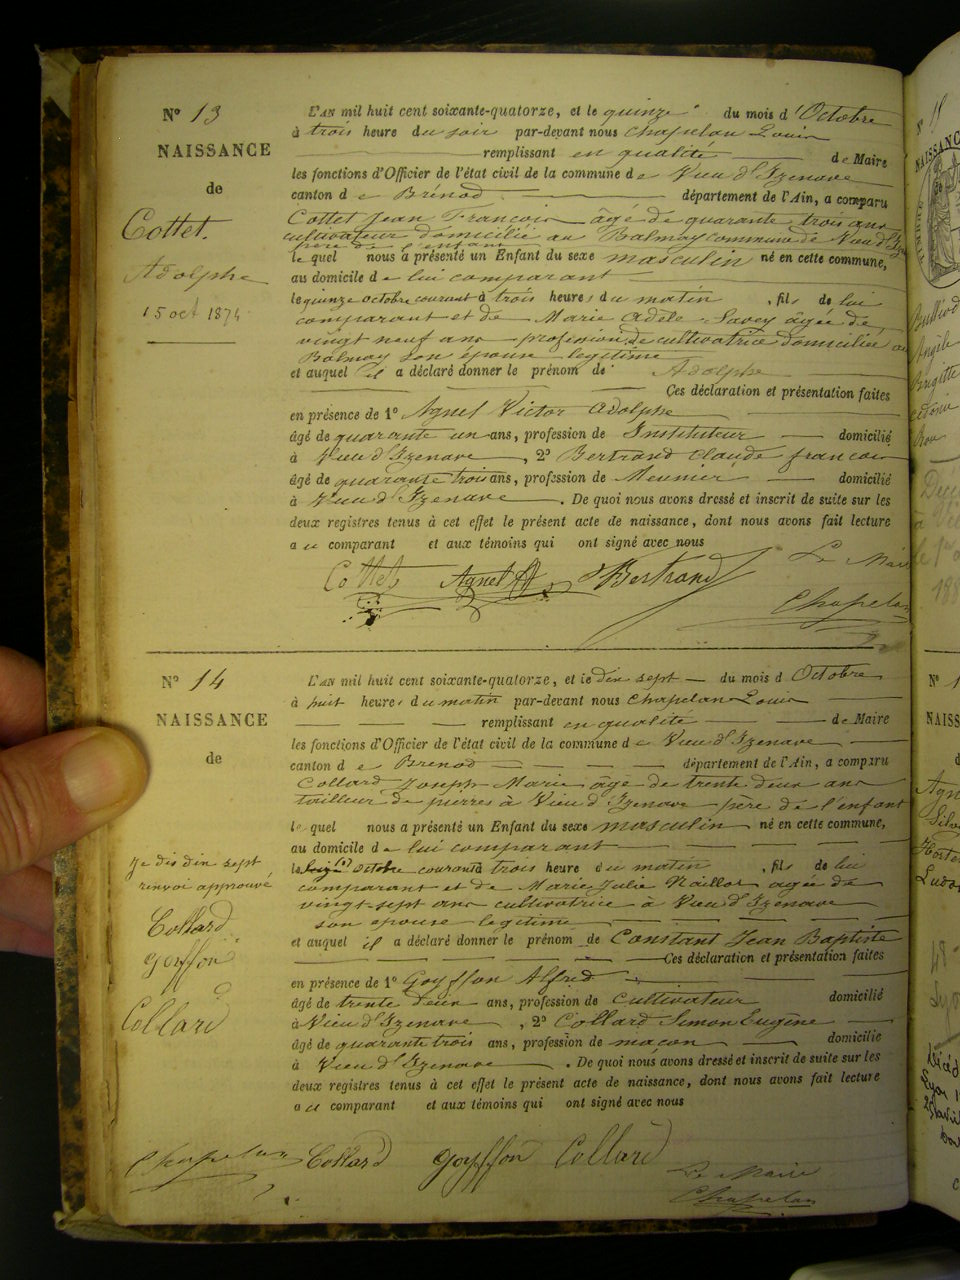 N° 13
NAISSANCE
de
Cottet.
Adolphe
15 oct 1874
L'AN mil huit cent soixante-quatorze, et le quinze du mois d'Octobre
à trois heure du soir par-devant nous Chapelan Louis
remplissant en qualité de Maire
les fonctions d'Officier de l'état civil de la commune de Vieu d'Izenave
canton de Brénod département de l'Ain, a comparu
Cottet Jean François âgé de quarante trois ans
cultivateur domicilié au Balmay commune de Vieu d'Ize
père de l'enfant
le quel nous a présenté un Enfant du sexe masculin né en cette commune,
au domicile de lui comparant
le quinze octobre courant à trois heures du matin, fils de lui
comparant et de Marie Adèle Savey âgée de
vingt neuf ans profession de cultivatrice domiciliée au
Balmay son épouse légitime
et auquel il a déclaré donner le prénom de Adolphe
Ces déclaration et présentation faites
en présence de 1° Agnel Victor Adolphe
âgé de quarante un ans, profession de Instituteur domicilié
à Vieu d'Izenave, 2° Bertrand Claude françois
âgé de quarante trois ans, profession de Meunier domicilié
à Vieu d'Izenave. De quoi nous avons dressé et inscrit de suite sur les
deux registres tenus à cet effet le présent acte de naissance, dont nous avons fait lecture
au comparant et aux témoins qui ont signé avec nous
Le Maire
Cottet Agnel Bertrand
Chapelan
N° 14
NAISSANCE
de
L'AN mil huit cent soixante-quatorze, et le dix sept du mois d Octobre
à huit heures du matin par-devant nous Chapelan Louis
remplissant en qualité de Maire
les fonctions d'Officier de l'état civil de la commune de Vieu d'Izenave
canton de Brenod département de l'Ain, a comparu
Collard Joseph Marie âge de trente deux ans
tailleur de pierres à Vieu d'Izenave père de l'enfant
le quel nous a présenté un Enfant du sexe masculin né en cette commune,
au domicile de lui comparant
le octobre courant à trois heure du matin, fils de lui
comparant et de Marie Julie Naillot agée de
vingt-sept ans cultivatrice à Vieu d'Izenave
son épouse légitime
et auquel il a déclaré donner le prénom de Constant Jean Baptiste
Ces déclaration et présentation faites
en présence de 1° Goyffon Alfred
âgé de trente deux ans, profession de Cultivateur domicilié
à Vieu d'Izenave, 2° Collard Simon Eugène
âgé de quarante trois ans, profession de maçon domicilié
à Vieu d'Izenave. De quoi nous avons dressé et inscrit de suite sur les
deux registres tenus à cet effet le présent acte de naissance, dont nous avons fait lecture
au comparant et aux témoins qui ont signé avec nous
je dis dix sept
renvoi approuvé
Collard
Goyffon
Collard
Chapelan Collard Goyffon Collard
Le Maire
Chapelan